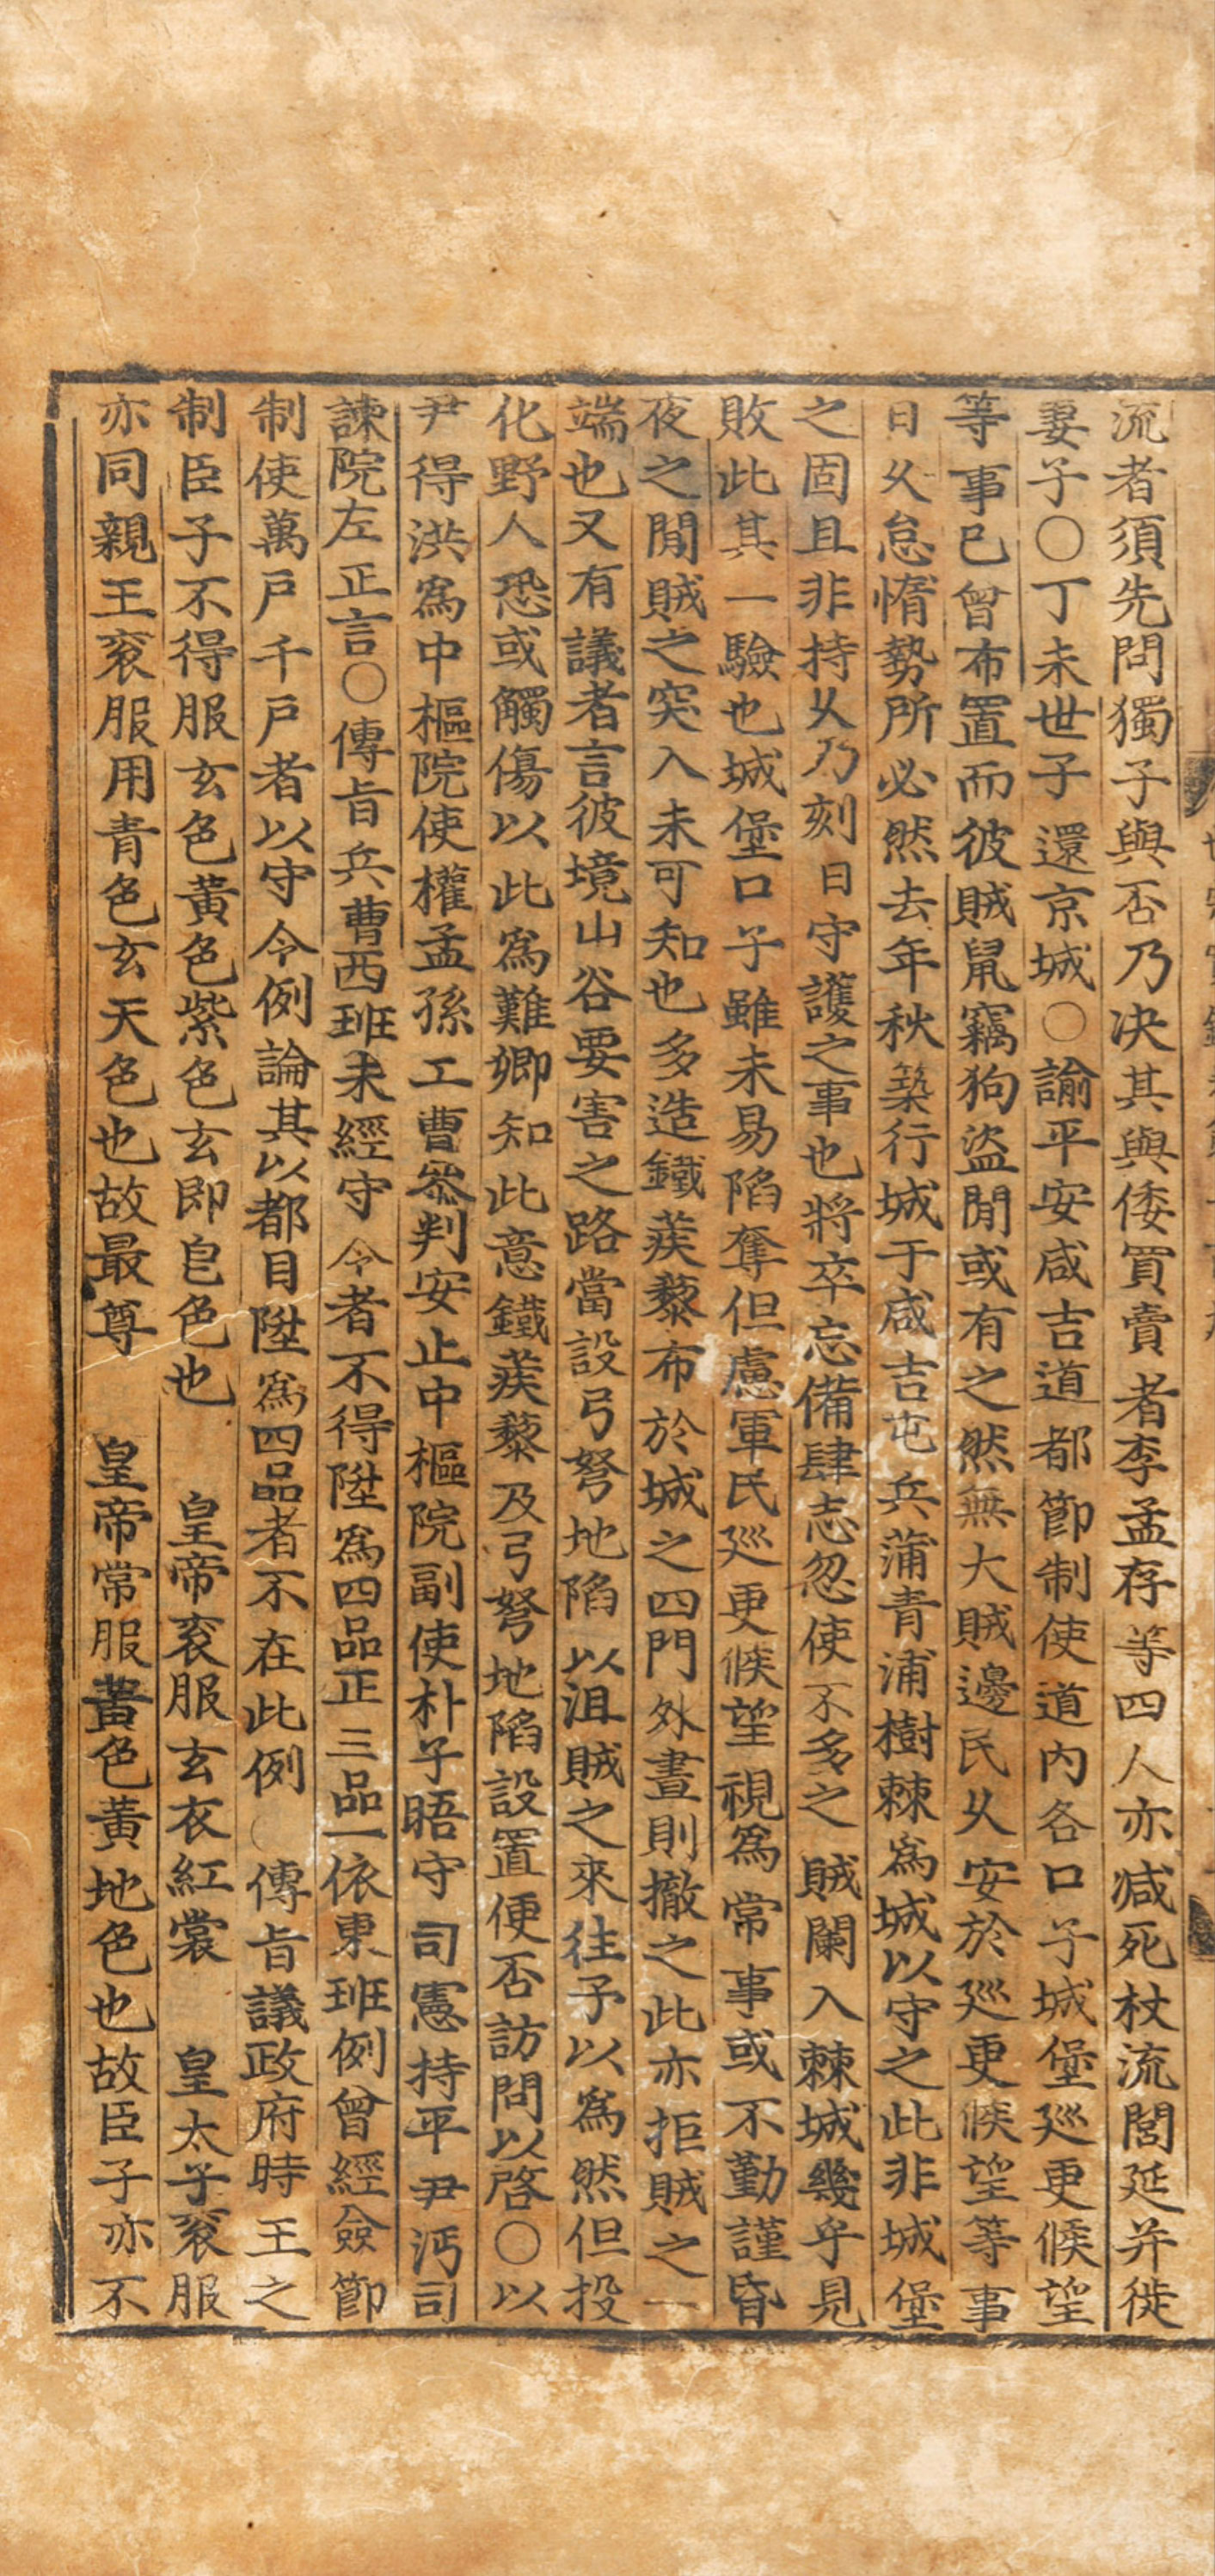 流者須先問獨子與否乃决其與倭買賣者李孟存等四人亦减死杖流閭延并徙
妻子○丁未世子還京城○諭平安咸吉道都節制使道內各口子城堡廵更候望
等事已曾布置而彼賊鼠竊狗盜閒或有之然無大賊邊民乆安於廵更候望等事
日乆怠惰勢所必然去年秋築行城于咸吉屯兵蒲青浦樹棘爲城以守之此非城堡
之固且非持乆乃刻日守護之事也將卒忘備肆志忽使不多之賊闌入棘城幾乎見
敗此其一驗也城堡口子雖未易陷奪但慮軍民廵更候望視爲常事或不勤謹昏
夜之閒賊之突入未可知也多造鐵蒺藜布於城之四門外晝則撤之此亦拒賊之一
端也又有議者言彼境山谷要害之路當設弓弩地陷以沮賊之來往予以爲然但投
化野人恐或觸傷以此爲難卿知此意鐵蒺藜及弓弩地陷設置便否訪問以啓○以
尹得洪爲中樞院使權孟孫工曹叅判安止中樞院副使朴子晤守司憲持平尹沔司
諫院左正言○傳旨兵曹西班未經守令者不得陞爲四品正三品一依東班例曾經僉節
制使萬戶千戶者以守令例論其以都目陞爲四品者不在此例○傳旨議政府時王之
制臣子不得服玄色黃色紫色玄即皀色也 皇帝衮服玄衣紅裳 皇太子衮服
亦同親王衮服用青色玄天色也故最尊 皇帝常服黃色黃地色也故臣子亦不